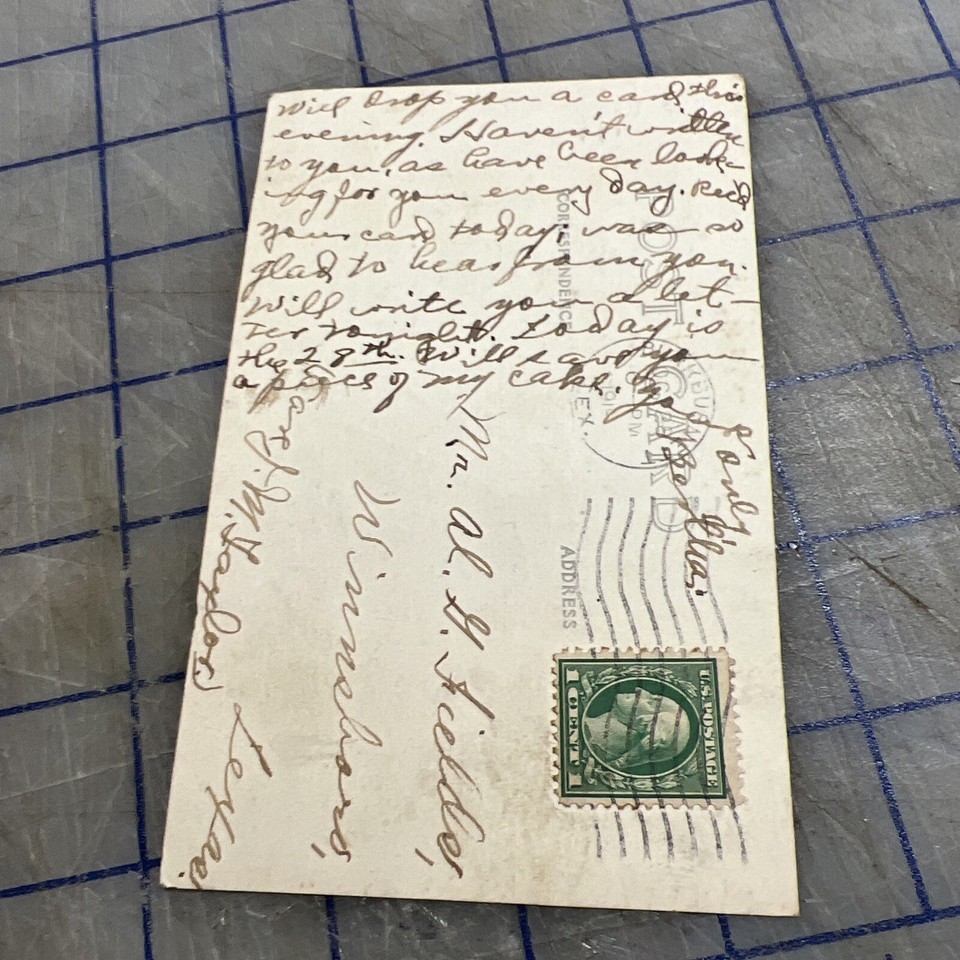 Will drop you a card this
evening. Haven't written
to you, as have been look-
ing for you every day. Rec'd
your card today, was so
glad to hear from you.
Will write you a let-
ter tonight. Today is
the 28th. Will save you
a piece of my cake. By
Only
Bertha.
POST CARD
CORRESPONDENCE
ADDRESS
TEX.
PM
Mr. Al. G. Fields,
Winnsboro,
Texas.
Care J. M. Taylor.
U.S. POSTAGE
1 CENT 1